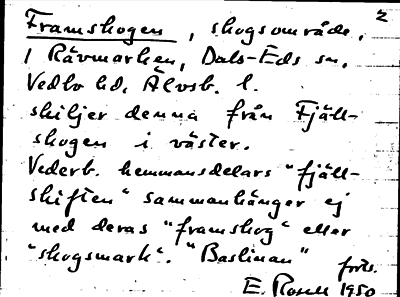 2
Framskogen, skogsområde,
i Rävmarken, Dals-Eds sn,
Vedbo hd, Älvsb. l.
skiljer denna från Fjäll-
skogen i väster.
Vederb. hemmansdelars "fjäll-
skiften" sammanhänger ej
med deras "framskog" eller
"skogsmark". "Baslinan"
forts.
E. Rosell 1950